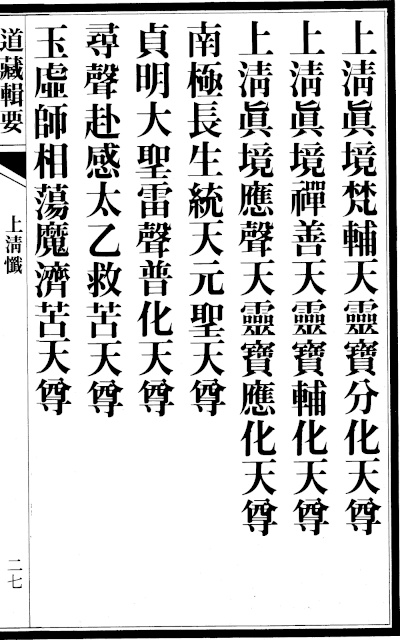 上淸眞境梵輔天靈寶分化天尊
上淸眞境禪善天靈寶輔化天尊
上淸眞境應聲天靈寶應化天尊
南極長生統天元聖天尊
貞明大聖雷聲普化天尊
尋聲赴感太乙救苦天尊
玉虛師相蕩魔濟苦天尊
道藏輯要
上淸懺
二七